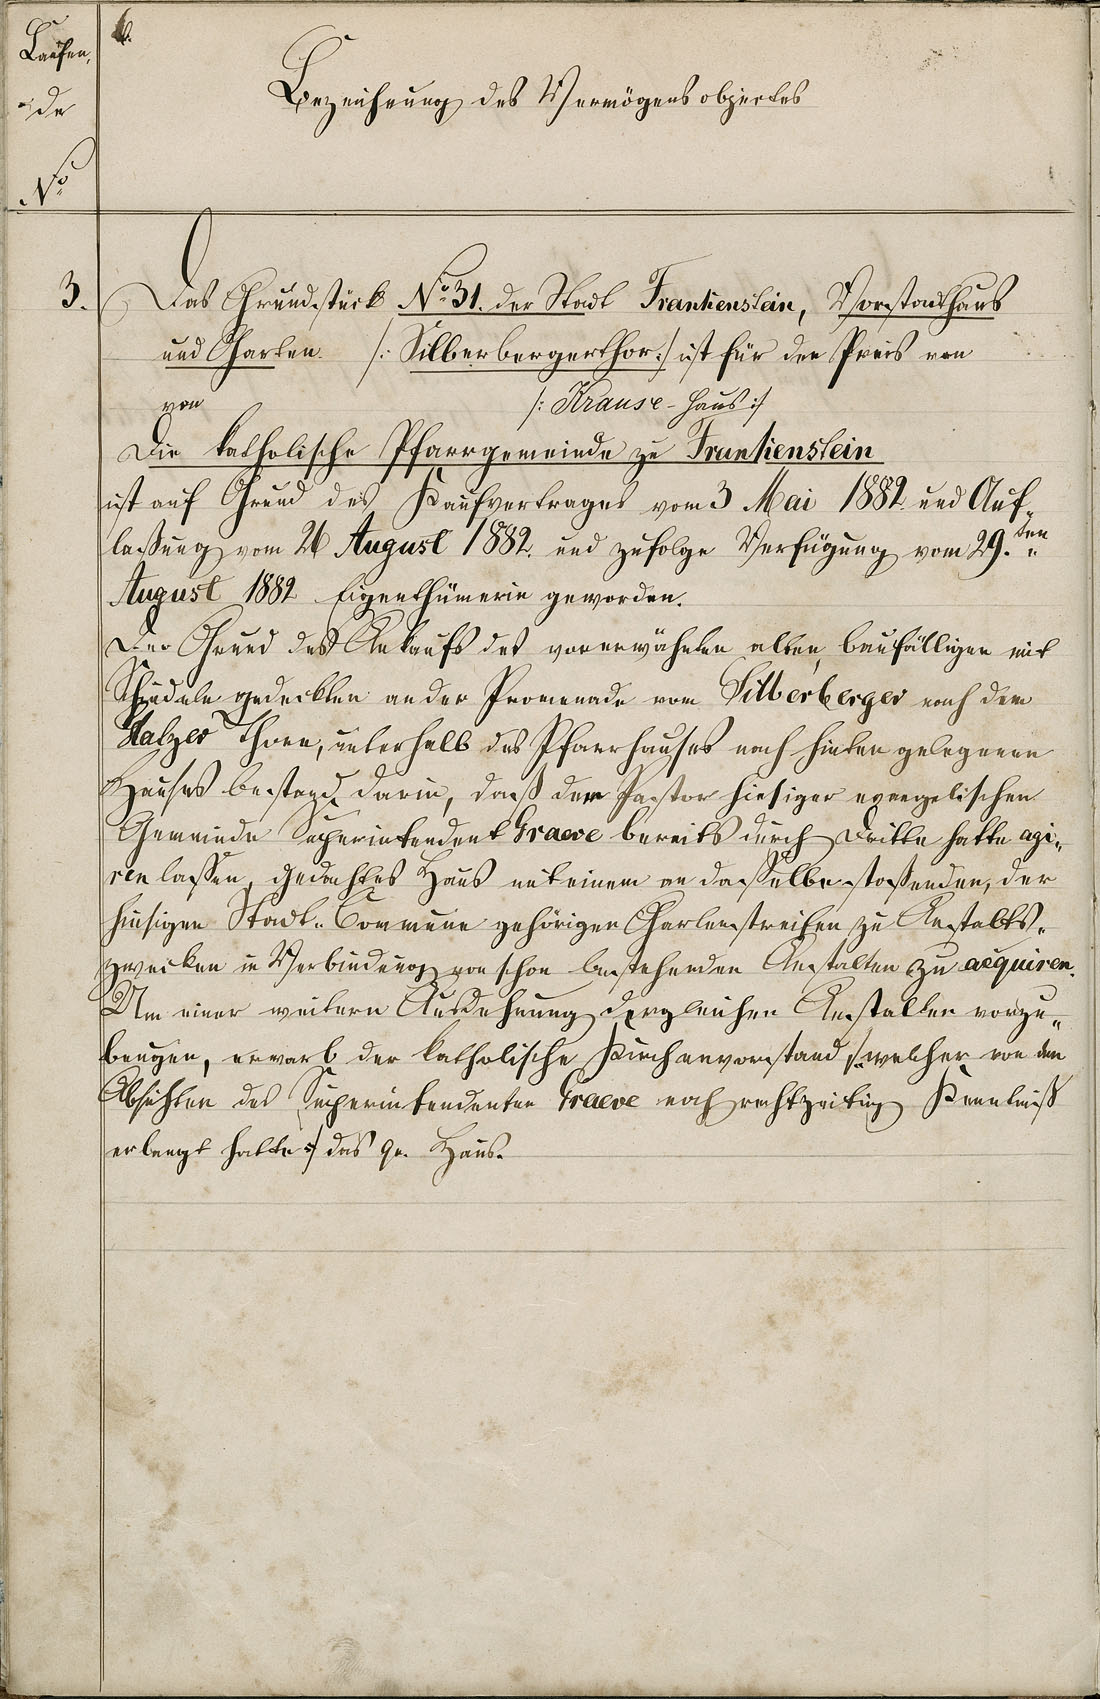 Laufen,
de
No
6.
Bezeichnung des Vermögensobjectes
3.
Das Grundstück No 31. der Stadt Frankenstein, Vorstadthaus
und Garten /: Silberbergerthor :/ ist für den Preis von
von /: Krause-Haus :/
Die katholische Pfarrgemeinde zu Frankenstein
ist auf Grund des Kaufvertrages vom 3 Mai 1882 und Auf-
lassung vom 26 August 1882. und zufolge Verfügung vom 29.ten
August 1882 Eigenthümerin geworden.
Der Grund des Ankaufs des vorerwähnten alten, baufälligen mit
Schindeln gedeckten an der Promenade vom Silberberger nach dem
Glatzer Thore, unterhalb des Pfarrhauses nach hinten gelegenen
Hauses bestand darin, daß der Pastor hiesiger evangelischen
Gemeinde Superintendent Graeve bereits durch Dritte hatte agi-
ren lassen, gedachtes Haus mit einem an dasselbe stoßenden, der
hiesigen Stadt-Commune gehörigen Gartenstreifen zu Anstalts-
zwecken in Verbindung von schon bestehenden Anstalten zu acquiren.
Um einer weitern Ausdehnung dergleichen Anstalten vorzu-
beugen, erwarb der katholische Kirchenvorstand /: welcher von den
Absichten des Superintendenten Graeve noch rechtzeitig Kenntniß
erlangt hatte :/ das qu. Haus.